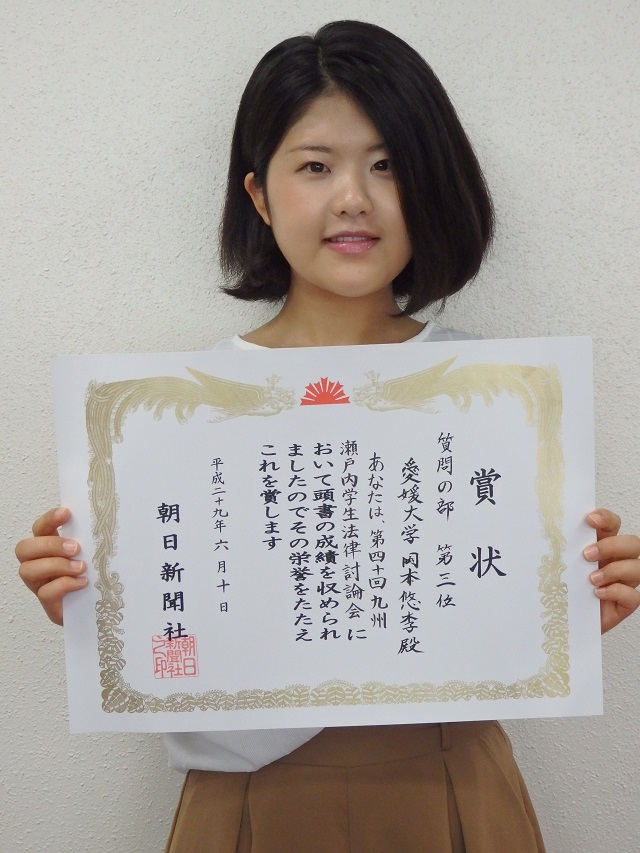 賞状
質問の部　第三位
愛媛大学 岡本悠李殿
あなたは、第四十回九州
瀬戸内学生法律討論会に
おいて頭書の成績を収められ
ましたのでその栄誉をたたえ
これを賞します
平成二十九年六月十日
朝日新聞社
朝日
新聞社
之印